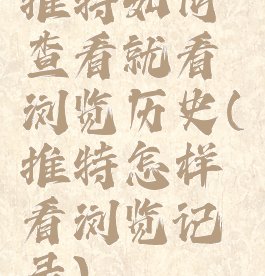 推特如何
查看就看
浏览历史(
推特怎样
看浏览记
录)